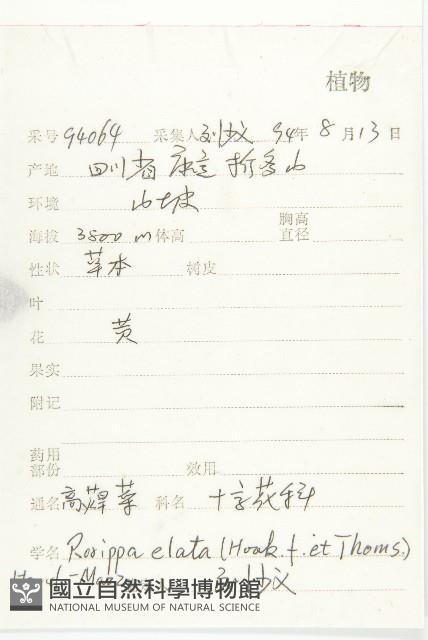 植物
采号 94064 采集人 刘 94年 8月13日
产地 四川省 康定 折多山
环境 山坡
胸高
海拔 3800 m 体高 直径
性状 草本 树皮
叶
花 黄
果实
附记
药用
部份 效用
通名 高蔊菜 科名 十字花科
学名 Rorippa elata (Hook. f. et Thoms.)
國立自然科學博物館
NATIONAL MUSEUM OF NATURAL SCIENCE